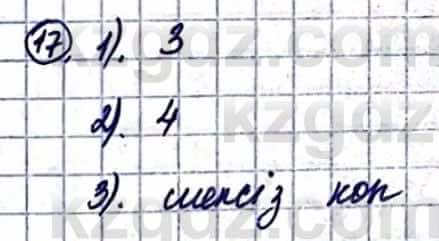 17. 1). 3
2). 4
3). шексіз көп
kzgdz.com